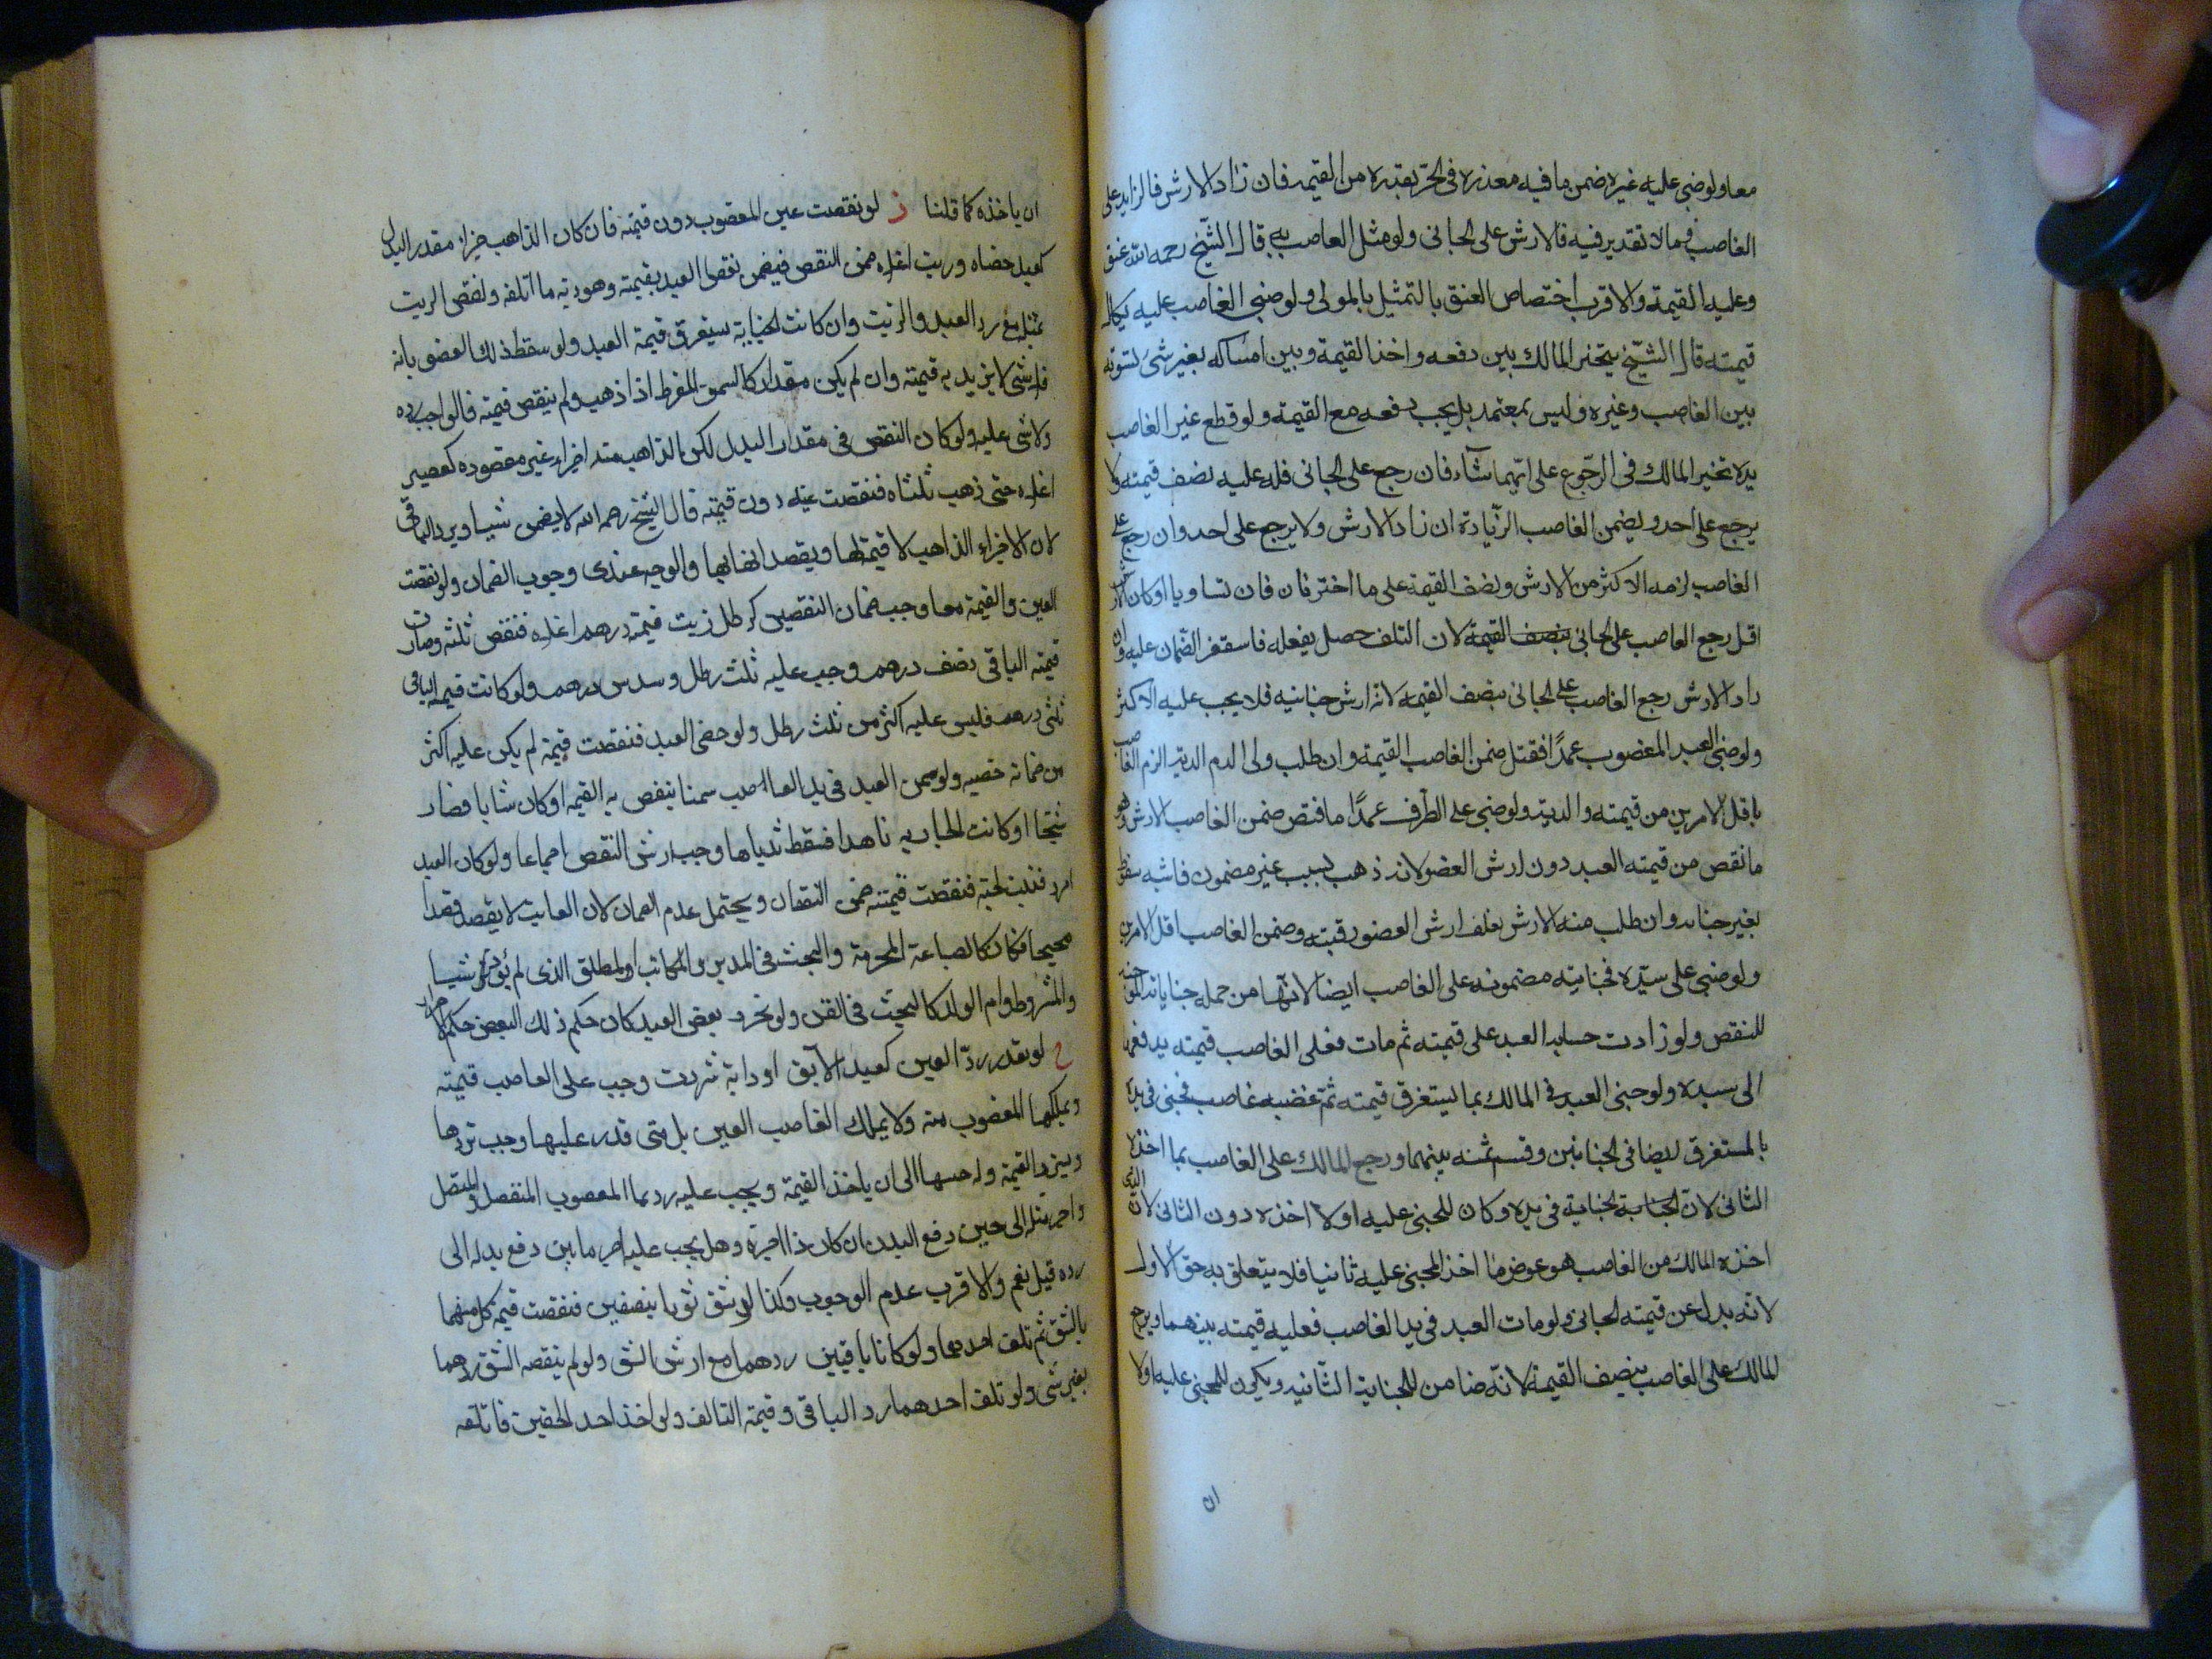 معا ولو جنى عليه غيره ضمن ما فيه مقدره فى الحر بقدره من القيمة فان زاد الارش فالزايد على
الغاصب فيما لا تقدير فيه فالارش على الجانى ولو مثل الغاصب به قال الشيخ رحمه الله عتق
وعليه القيمة والاقرب اختصاص العتق بالتمثيل بالمولى ولو جنى الغاصب عليه بكمال
قيمته قال الشيخ يتخير المالك بين دفعه واخذ القيمة وبين امساكه بغير شئ لتسويته
بين الغاصب وغيره وليس بمعتمد بل يجب دفعه مع القيمة ولو قطع غير الغاصب
يده تخير المالك فى الرجوع على ايهما شآء فان رجع على الجانى فله عليه نصف قيمته ولا
يرجع على احد ويضمن الغاصب الزيادة ان زاد الارش ولا يرجع على احد وان رجع على
الغاصب لزمه الاكثر من الارش ونصف القيمة على ما اخترناه فان تساويا او كان الارش
اقل رجع الغاصب على الجانى بنصف القيمة لان التلف حصل بفعله فاستقر الضمان عليه وان
زاد الارش رجع الغاصب على الجانى بنصف القيمة لانه ارش جنايته فلا يجب عليه الاكثر
ولو جنى العبد المغصوب عمدا فقتل ضمن الغاصب القيمة وان طلب ولى الدم الدية الزم الغاصب
باقل الامرين من قيمته والدية ولو جنى على الطرف عمدًا فاقتص ضمن الغاصب الارش وهو
ما نقص من قيمته العبد دون ارش العضو لانه ذهب بسبب غير مضمون فاشبه سقطه
بغير جناية وان طلب منه الارش تعلق ارش العضو رقبته وضمن الغاصب اقل الامرين
ولو جنى على سيده فجنايته مضمونه على الغاصب ايضا لانها من جمله جناياته الموجبة
للنقص ولو زادت جناية العبد على قيمته ثم مات فعلى الغاصب قيمته يدفعها
الى سيده ولو جنى العبد فى المالك بما يستغرق قيمته ثم غضبه غاصب فجنى فى يده
بالمستغرق ايضا فى الجنايتين وقسم ثمنه بينهما ورجع المالك على الغاصب بما اخذه
الثانى لان الجناية الجناية فى يده وكان للمجنى عليه اولا اخذه دون الثانى لان الذى
اخذه المالك من الغاصب هو عوض ما اخذ المجنى عليه ثانيا فلا يتعلق به حق الاول
لانه بدل عن قيمته الجانى ولو مات العبد فى يد الغاصب فعليه قيمته بينهما ويرجع
المالك على الغاصب بنصف القيمة لانه ضامن للجناية الثانيه ويكون للمجنى عليه اولا
ان
ان ياخذه كما قلنا ز لو نقصت عين المغصوب دون قيمته فان كان الذاهب جزاء مقدر البدل
كعبد خصاه وزيت اغلاه ضمن النقص فيضمن نقص العبد بقيمته وهو دية ما اتلفه ونقص الزيت
بمثله مع رد العبد والزيت وان كانت الجناية تستغرق قيمة العبد ولو سقط ذلك العضو بآفة
فلا شئ لا يزيد به قيمته وان لم يكن مقدار كالسمن المفرط اذا ذهب ولم ينقص قيمته فالواجب رده
ولا شئ عليه ولو كان النقص فى مقدار البدل لكن الذاهب منه اجزاء غير مقصوده كعصير
اغلاه حتى ذهب ثلثاه فنقصت عينه دون قيمته قال الشيخ رحمه الله لا يضمن شيا ويرد الباقى
لان الاجزاء الذاهب لا قيمة لها ويقصد اذهابها والوجه عندى وجوب الضمان ولو نقصت
العين والقيمة معا وجب ضمان النقصين كرطل زيت قيمته درهم اغلاه فنقص ثلثه وصارت
قيمته الباقى نصف درهم وجب عليه ثلث رطل وسدس درهم ولو كانت قيمه الباقى
ثلثى درهم فليس عليه اكثر من ثلث رطل ولو خصى العبد فنقصت قيمته لم يكن عليه اكثر
من ضمانه خصيه ولو سمن العبد فى يد الغاصب سمنا ينقص به القيمه او كان شابا فصار
شيخا او كانت الجاريه ناهدا فسقط ثدياها وجب ارش النقص اجماعا ولو كان العبد
امرد فنبت لحيته فنقصت قيمته ضمن النقصان ويحتمل عدم الضمان لان الفايت لا يقصد قصدا
صحيحا فكان كالصناعة المحرمة والبحث فى المدبر والمكاتب والمطلق الذى لم يؤد شيا
والمشروط وام الولد كالبحث فى القن ولو تحرر بعض العبد كان حكم ذلك البعض حكم الاحرار
ح لو تعذر رد العين كعبد الآبق او دابة شردت وجب على الغاصب قيمته
ويملكها المغضوب منه ولا يملك الغاصب العين بل متى قدر عليها وجب ردها
ويسترد القيمة وله حبسها الى ان ياخذ القيمة ويجب عليه رد نما المغصوب المنفصل والمتصل
واجر مثله الى حين دفع البدل ان كان ذا اجرة وهل يجب عليه اجر ما بين دفع بدله الى
رده قيل نعم والاقرب عدم الوجوب وكذا لو شق ثوبا بنصفين فنقصت قيمة كل منهما
بالشق ثم تلف احدهما ولو كانا باقيين ردهما مع ارش الشق ولو لم ينقصه الشق ردهما
بغير شئ ولو تلف احدهما رد الباقى وقيمة التالف ولو اخذ احد الخفين فاتلفه